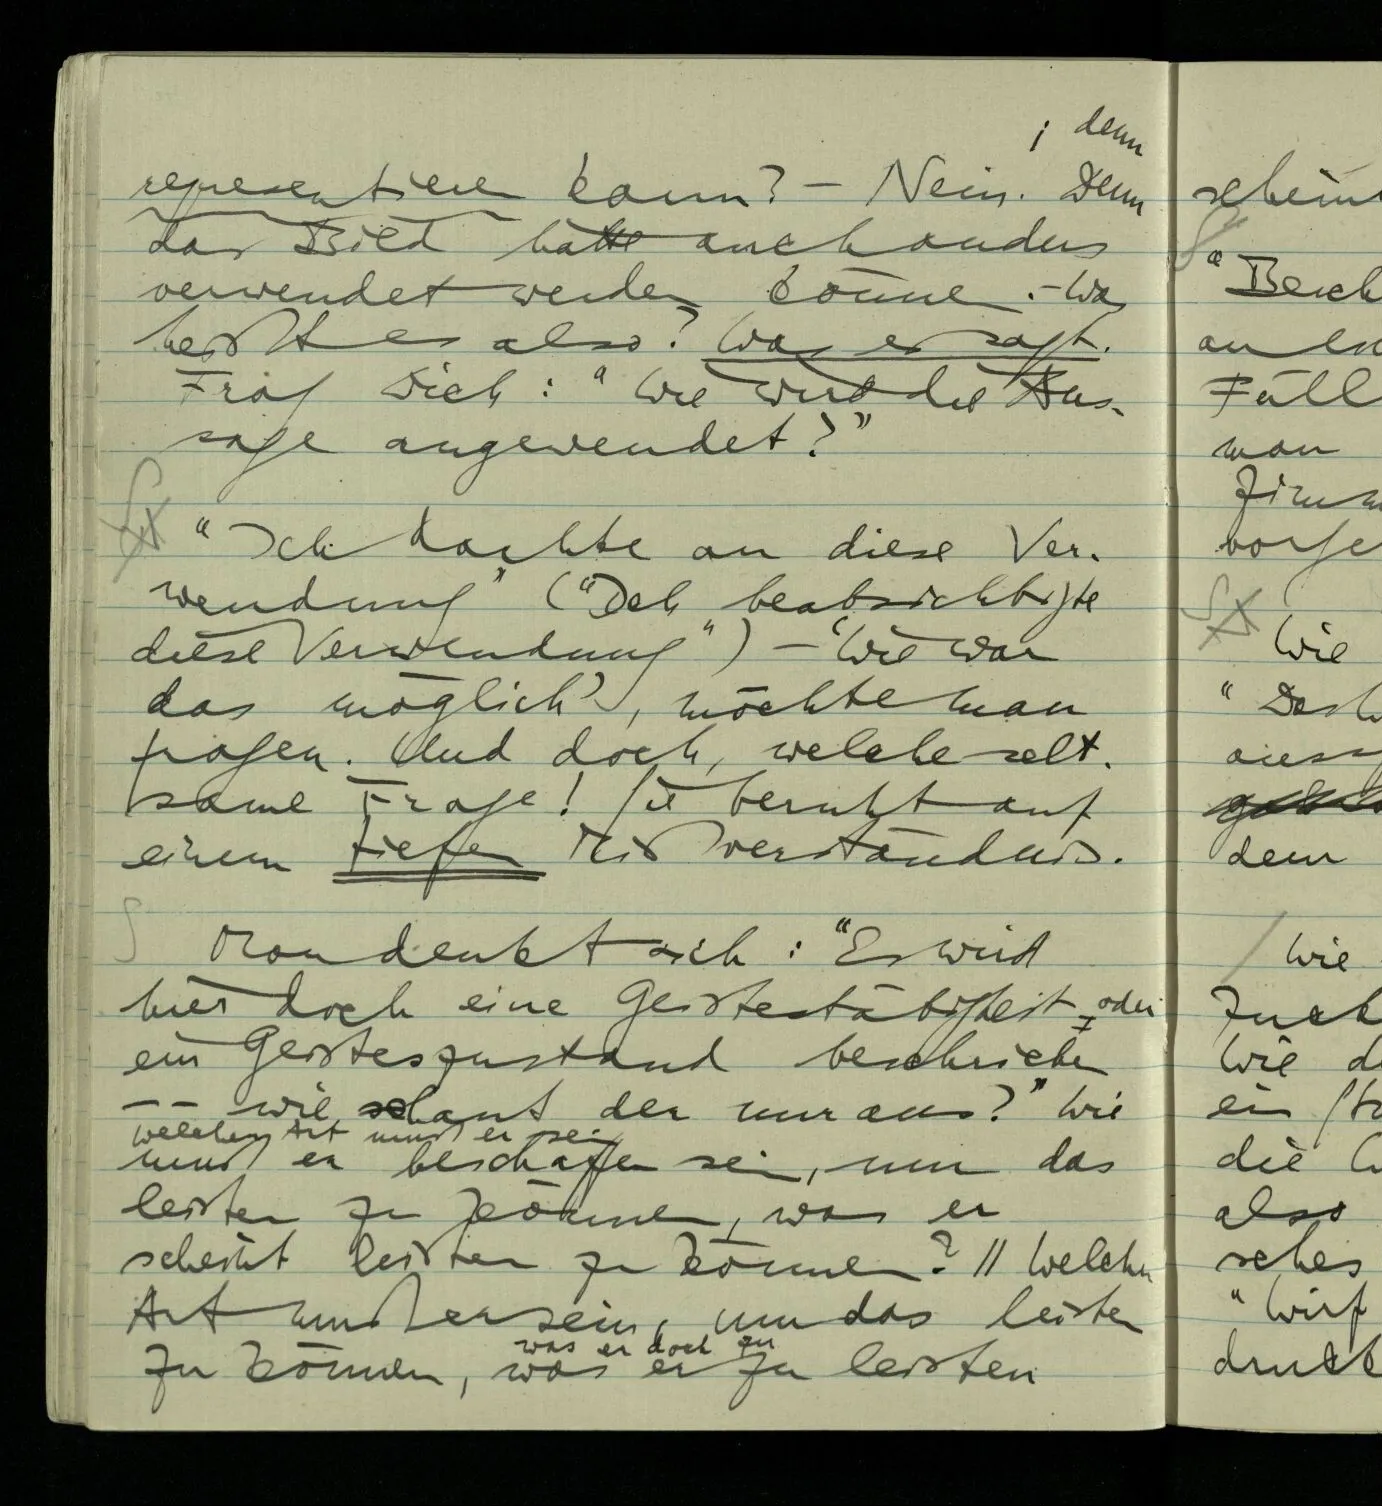 ; denn
representieren kann? – Nein. Denn
das Bild hätte auch anders
verwendet werden können. – Was
heißt es also? Was es sagt.
Frag Dich: "Wie wird die Aus-
sage angewendet?"
"Ich dachte an diese Ver-
wendung" ("Ich beabsichtigte
diese Verwendung") – 'Wie war
das möglich', möchte man
fragen. Und doch, welche selt-
same Frage! Sie beruht auf
einem tiefen Mißverständnis.
§ Man denkt sich: "Es wird
hier doch eine Geistestätigkeit, oder
ein Geisteszustand beschrieben
–– wie schaut der nur aus?" Wie
welcher Art muß er sein
muß er beschaffen sein, um das
leisten zu können, was er
scheint leisten zu können? // Welcher
Art muß er sein, um das leisten
was er doch zu
zu können, was er zu leisten
schein
"Besch
an
Fäll
man
Zimm
vorge
Wie
"Das
auss
dem
Wie
Zuck
Wie d
ein St
die W
also
sches
"Wirf
druck